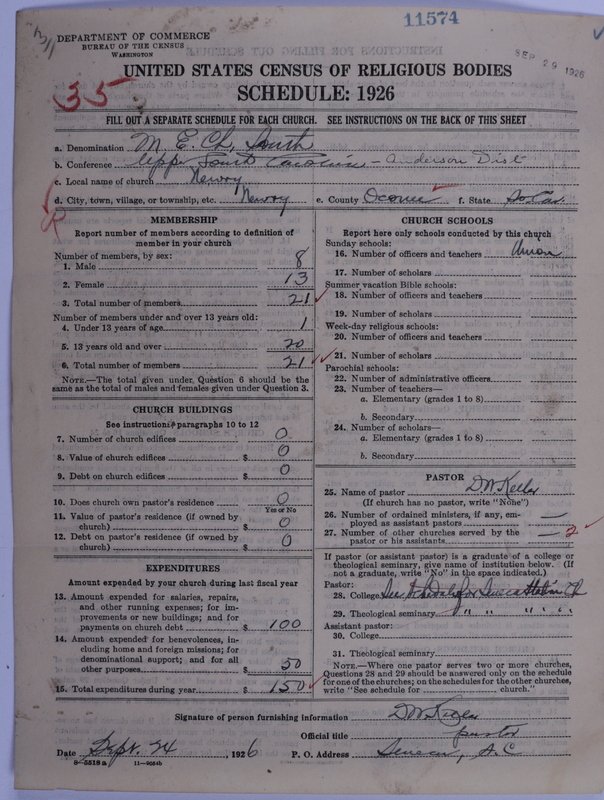 11574
DEPARTMENT OF COMMERCE
BUREAU OF THE CENSUS
WASHINGTON
SEP 29 1926
UNITED STATES CENSUS OF RELIGIOUS BODIES
SCHEDULE: 1926
35
FILL OUT A SEPARATE SCHEDULE FOR EACH CHURCH. SEE INSTRUCTIONS ON THE BACK OF THIS SHEET
a. Denomination M. E. Ch. South
b. Conference Upper South Carolina - Anderson Dist
c. Local name of church Newry
d. City, town, village, or township, etc. Newry e. County Oconee f. State So. Car.
MEMBERSHIP
Report number of members according to definition of member in your church
Number of members, by sex:
1. Male 8
2. Female 13
3. Total number of members 21
Number of members under and over 13 years old:
4. Under 13 years of age 1
5. 13 years old and over 20
6. Total number of members 21
NOTE.—The total given under Question 6 should be
same as the total of males and females given under Question 3.
CHURCH BUILDINGS
See instructions, paragraphs 10 to 12
7. Number of church edifices 0
8. Value of church edifices $ 0
9. Debt on church edifices $ 0
10. Does church own pastor's residence 0
Yes or No
11. Value of pastor's residence (if owned by
church) $ 0
12. Debt on pastor's residence (if owned by
church) $ 0
EXPENDITURES
Amount expended by your church during last fiscal year
13. Amount expended for salaries, repairs,
and other running expenses; for im-
provements or new buildings; and for
payments on church debt $ 100
14. Amount expended for benevolences, in-
cluding home and foreign missions; for
denominational support; and for all
other purposes $ 50
15. Total expenditures during year $ 150
CHURCH SCHOOLS
Report here only schools conducted by this church
Sunday schools:
16. Number of officers and teachers Union
17. Number of scholars
Summer vacation Bible schools:
18. Number of officers and teachers
19. Number of scholars
Week-day religious schools:
20. Number of officers and teachers
21. Number of scholars
Parochial schools:
22. Number of administrative officers
23. Number of teachers—
a. Elementary (grades 1 to 8)
b. Secondary
24. Number of scholars—
a. Elementary (grades 1 to 8)
b. Secondary
PASTOR
25. Name of pastor D. W. Keller
(If church has no pastor, write "None")
26. Number of ordained ministers, if any, em-
ployed as assistant pastors —
27. Number of other churches served by the
pastor or his assistants — 2
If pastor (or assistant pastor) is a graduate of a college or
theological seminary, give name of institution below. (If
not a graduate, write "No" in the space indicated.)
Pastor:
28. College See Schedule for Seneca Station Ch
29. Theological seminary " " " " "
Assistant pastor:
30. College
31. Theological seminary
NOTE.—Where one pastor serves two or more churches,
Questions 28 and 29 should be answered only on the schedule
for one of the churches; on the schedules for the other churches,
write "See schedule for church."
Signature of person furnishing information D. W. Keller
Official title pastor
Date Sept. 24, 1926 P. O. Address Seneca, S. C
8-5518a 11-9024b